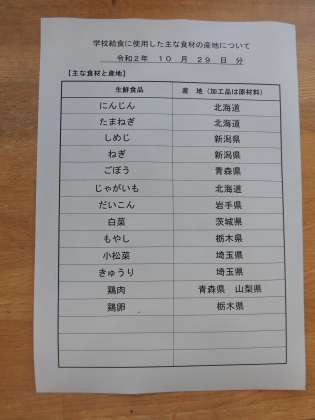 学校給食に使用した主な食材の産地について
令和2年 10月 29日 分
【主な食材と産地】
生鮮食品 産 地（加工品は原材料）
にんじん 北海道
たまねぎ 北海道
しめじ 新潟県
ねぎ 新潟県
ごぼう 青森県
じゃがいも 北海道
だいこん 岩手県
白菜 茨城県
もやし 栃木県
小松菜 埼玉県
きゅうり 埼玉県
鶏肉 青森県 山梨県
鶏卵 栃木県